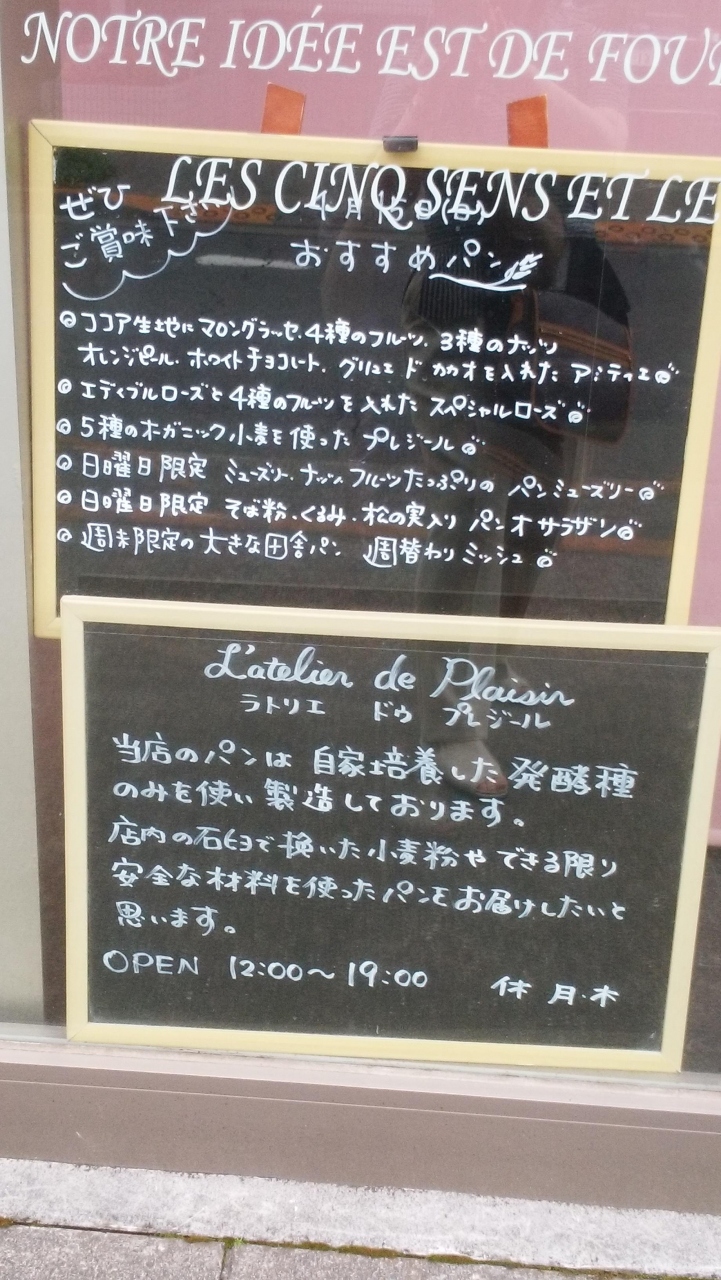 NOTRE IDÉE EST DE FOU
LES CINQ SENS ET LE
ぜひ
ご賞味下さい
おすすめパン
ココア生地にマロングラッセ、4種のフルーツ、3種のナッツ
オレンジピール、ホワイトチョコレート、グリュエ ド カカオを入れた アミティエ
エディブルローズと4種のフルーツを入れた スペシャルローズ
5種のオーガニック小麦を使った プレジール
日曜日限定 ミューズリー・ナッツ フルーツたっぷりの パンミューズリー
日曜日限定 そば粉、くるみ、松の実入り パン オ サラザン
週末限定の大きな田舎パン 週替わりミッシュ
L'atelier de Plaisir
ラトリエ ドゥ プレジール
当店のパンは 自家培養した 発酵種
のみを使い 製造しております。
店内の石臼で挽いた小麦粉や できる限り
安全な材料を使ったパンをお届けしたいと
思います。
OPEN 12:00〜19:00 休 月・木